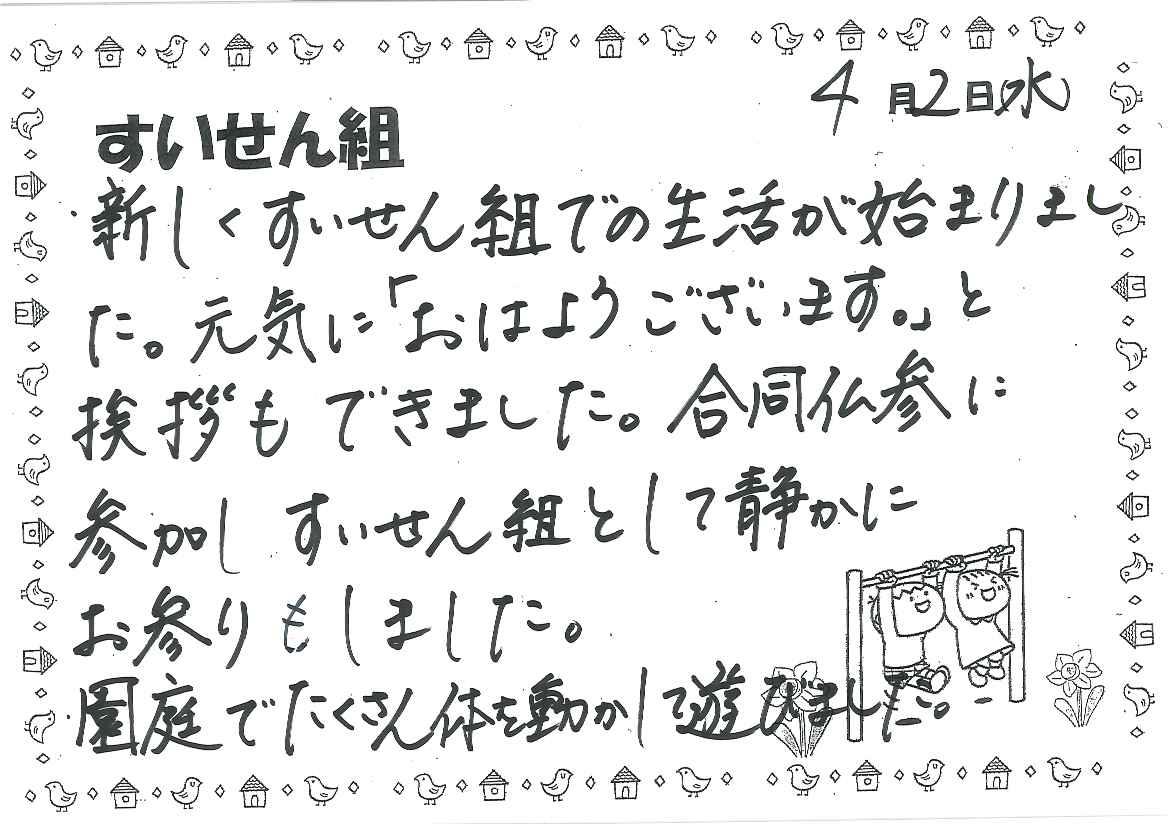 4月2日(水)
すいせん組
・新しくすいせん組での生活が始まりまし
た。元気に「おはようございます。」と
挨拶もできました。合同仏参に
参加しすいせん組として静かに
お参りもしました。
・園庭でたくさん体を動かして遊びました。